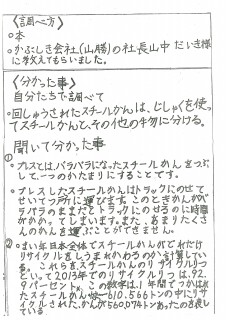 〈調べ方〉
○本
○かぶしき会社(山勝)の社長山中だいき様
に教えてもらいました。
〈分かった事〉
自分たちで調べて
○回しゅうされたスチールかんは、じしゃくを使っ
てスチールかんと、その他の物に分ける。
聞いて分かった事
○プレスとは、バラバラになったスチールかんをつぶ
して、一つのかたまりにすることです。
○プレスしたスチールかんはトラックにのせて
せいてつ所に運びます。このときかんが
バラバラのままだとトラックにのせるのに時間
がかかってしまいます。また、あまりたくさ
んのかんを運ぶことができません。
○まい年日本全体でスチールかんがどれだけ
リサイクルをしうまれかわるのか計算してい
る。これらをスチールかんのリサイクルりつ
といって2013年でのリサイクルりつは、92.
9パーセント。この数字は、1年間でつかわれ
たスチールかん 610.566トンの中にリサ
イクルされた、かんが560074トンあったのを表し
ている